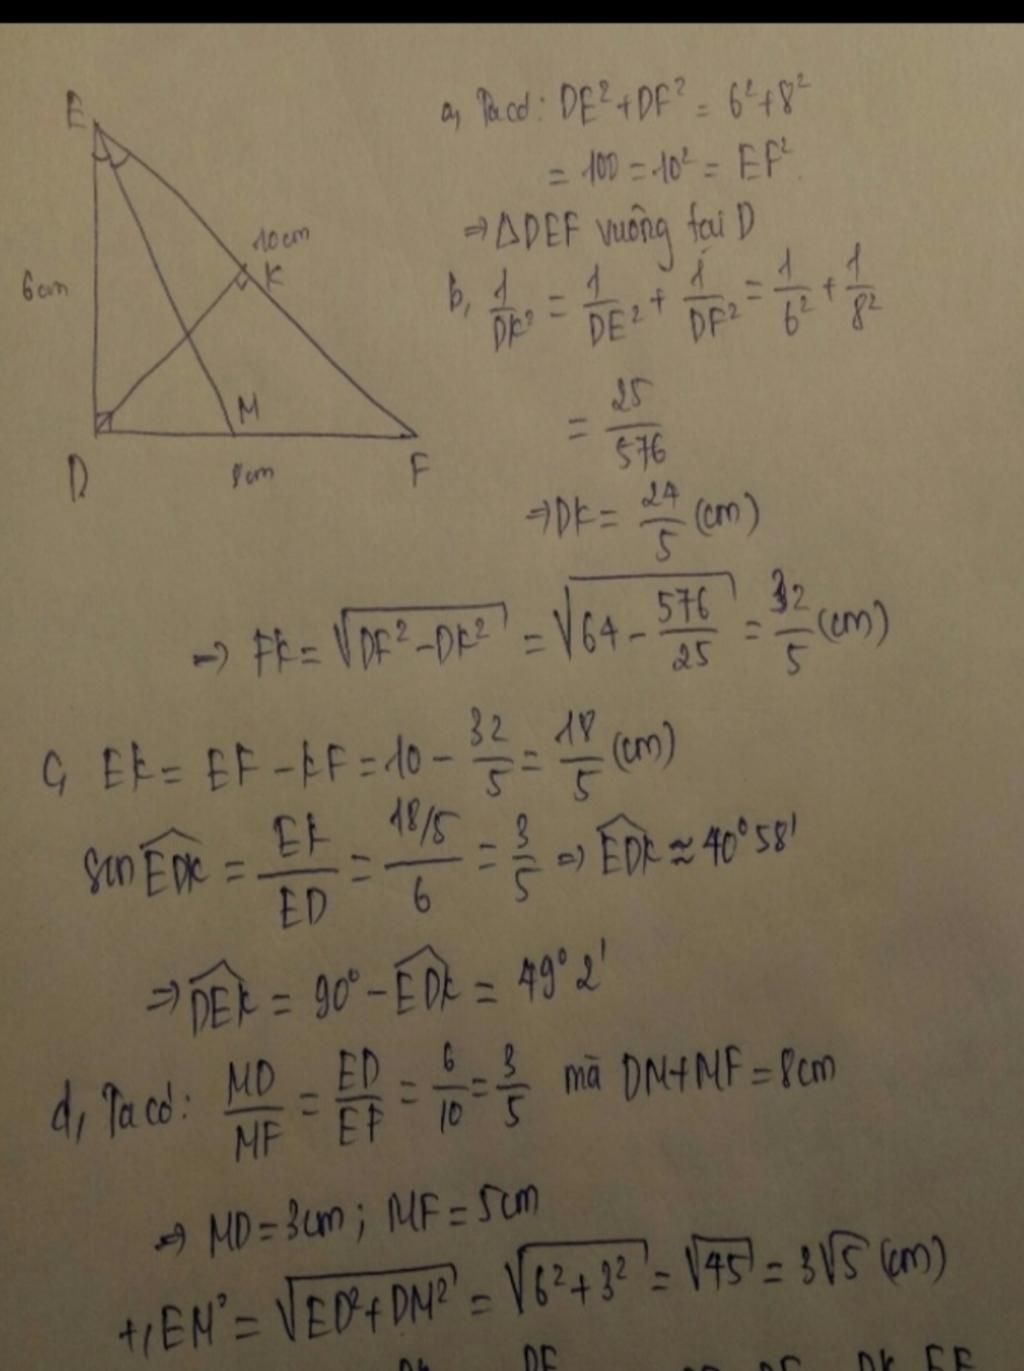 E
10cm
K
6cm
M
D
8cm
F
a, Ta có: DE² + DF² = 6² + 8²
= 100 = 10² = EF²
⇒ ΔDEF vuông tại D
b, 1/DK² = 1/DE² + 1/DF² = 1/6² + 1/8²
= 25/576
⇒ DK = 24/5 (cm)
⇒ FK = √(DF² - DK²) = √(64 - 576/25) = 32/5 (cm)
c, EK = EF - KF = 10 - 32/5 = 18/5 (cm)
sin EDK̂ = EK/ED = (18/5)/6 = 3/5 ⇒ EDK̂ ≈ 40°58'
⇒ DEK̂ = 90° - EDK̂ = 49°2'
d, Ta có: MD/MF = ED/EF = 6/10 = 3/5 mà DM + MF = 8cm
⇒ MD = 3cm; MF = 5cm
+, EM² = √(ED² + DM²) = √(6² + 3²) = √45 = 3√5 (cm)